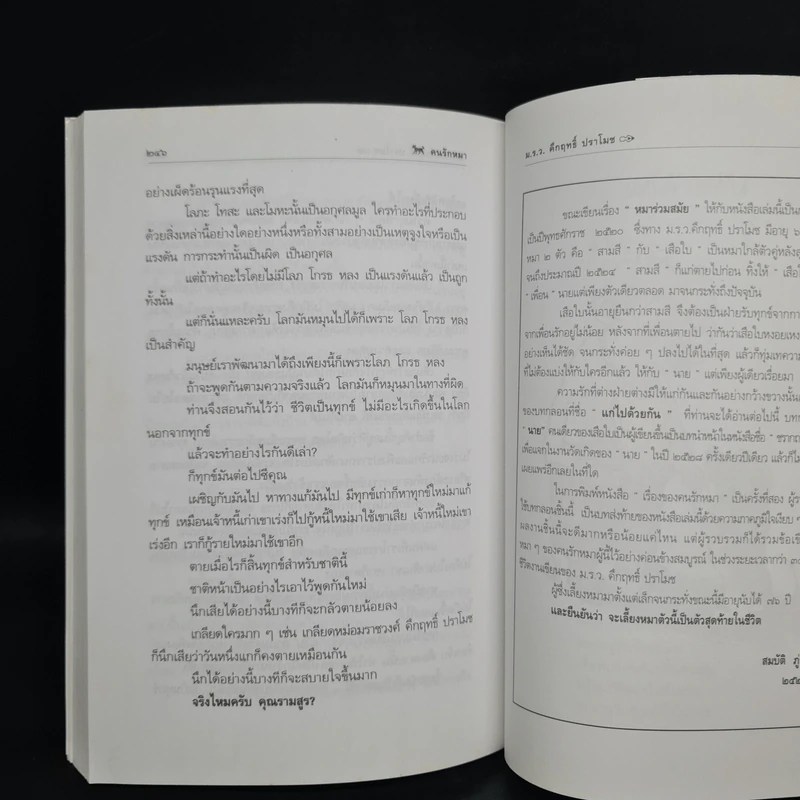 ๒๔๖
คนรักหมา
อย่างเผ็ดร้อนรุนแรงที่สุด
โลภะ โทสะ และโมหะนั้นเป็นอกุศลมูล ใครทำอะไรที่ประกอบ
ด้วยสิ่งเหล่านี้อย่างใดอย่างหนึ่งหรือทั้งสามอย่างเป็นเหตุจูงใจหรือเป็น
แรงดัน การกระทำนั้นเป็นผิด เป็นอกุศล
แต่ถ้าทำอะไรโดยไม่มีโลภ โกรธ หลง เป็นแรงดันแล้ว เป็นถูก
ทั้งนั้น
แต่ก็นั่นแหละครับ โลกมันหมุนไปได้ก็เพราะ โลภ โกรธ หลง
เป็นสำคัญ
มนุษย์เราพัฒนามาได้ถึงเพียงนี้ก็เพราะโลภ โกรธ หลง
ถ้าจะพูดกันตามความจริงแล้ว โลกมันก็หมุนมาในทางที่ผิด
ท่านจึงสอนกันไว้ว่า ชีวิตเป็นทุกข์ ไม่มีอะไรเกิดขึ้นในโลก
นอกจากทุกข์
แล้วจะทำอย่างไรกันดีเล่า?
ก็ทุกข์มันต่อไปซีคุณ
เผชิญกับมันไป หาทางแก้มันไป มีทุกข์เก่าก็หาทุกข์ใหม่มาแก้
ทุกข์ เหมือนเจ้าหนี้เก่าเขาเร่งก็ไปกู้หนี้ใหม่มาใช้เขาเสีย เจ้าหนี้ใหม่เขา
เร่งอีก เราก็กู้รายใหม่มาใช้เขาอีก
ตายเมื่อไรก็สิ้นทุกข์สำหรับชาตินี้
ชาติหน้าเป็นอย่างไรเอาไว้พูดกันใหม่
นึกเสียได้อย่างนี้บางทีก็จะกลัวตายน้อยลง
เกลียดใครมาก ๆ เช่น เกลียดหม่อมราชวงศ์ คึกฤทธิ์ ปราโมช
ก็นึกเสียว่าวันหนึ่งแกก็คงตายเหมือนกัน
นึกได้อย่างนี้บางทีก็จะสบายใจขึ้นมาก
จริงไหมครับ คุณรามสูร?
ม.ร.ว. คึกฤทธิ์ ปราโมช
ขณะเขียนเรื่อง " หมาร่วมสมัย " ให้กับหนังสือเล่มนี้เป็น
เป็นปีพุทธศักราช ๒๕๒๐ ซึ่งทาง ม.ร.ว.คึกฤทธิ์ ปราโมช มีอายุ ๖
หมา ๒ ตัว คือ " สามสี " กับ " เสือใบ " เป็นหมาใกล้ตัวคู่หลังสุ
จนถึงประมาณปี ๒๕๒๔ " สามสี " ก็แก่ตายไปก่อน ทิ้งให้ " เสือใ
" เพื่อน " นายแต่เพียงตัวเดียวตลอด มาจนกระทั่งถึงปัจจุบัน
เสือใบนั้นอายุยืนกว่าสามสี จึงต้องเป็นฝ่ายรับทุกข์จากกา
จากเพื่อนรักอยู่ไม่น้อย หลังจากที่เพื่อนตายไป ว่ากันว่าเสือใบหงอยเหง
อย่างเห็นได้ชัด จนกระทั่งค่อย ๆ ปลงไปได้ในที่สุด แล้วก็ทุ่มเทความ
ที่ไม่ต้องแบ่งให้กับใครอีกแล้ว ให้กับ " นาย " แต่เพียงผู้เดียวเรื่อยมา
ความรักที่ต่างฝ่ายต่างมีให้แก่กันและกันอย่างกว้างขวางนั้น
ของบทกลอนที่ชื่อ " แก่ไปด้วยกัน " ที่ท่านจะได้อ่านต่อไปนี้ บทก
" นาย" คนเดียวของเสือใบเป็นผู้เขียนขึ้นเป็นบทนำหน้าในหนังสือชื่อ
เพื่อแจกในงานวันเกิดของ " นาย " ในปี ๒๕๒๘ ครั้งเดียวปีเดียว แล้วก็ไม
เผยแพร่อีกเลยในที่ใด
ในการพิมพ์หนังสือ " เรื่องของคนรักหมา " เป็นครั้งที่สอง ผู้ร
ใช้บทกลอนชิ้นนี้ เป็นบทส่งท้ายของหนังสือเล่มนี้ด้วยความภาคภูมิใจเงียบ ๆ
ผลงานชิ้นนี้จะดีมากหรือน้อยแค่ไหน แต่ผู้รวบรวมก็ได้รวมข้อเขีย
หมา ๆ ของคนรักหมาผู้นี้ไว้อย่างค่อนข้างสมบูรณ์ ในช่วงระยะเวลากว่า ๓๐
ชีวิตงานเขียนของ ม.ร.ว. คึกฤทธิ์ ปราโมช
ผู้ซึ่งเลี้ยงหมามาตั้งแต่เล็กจนกระทั่งขณะนี้มีอายุนับได้ ๗๖ ปี
และยืนยันว่า จะเลี้ยงหมาตัวนี้เป็นตัวสุดท้ายในชีวิต
สมบัติ ภู่
๒๕๒